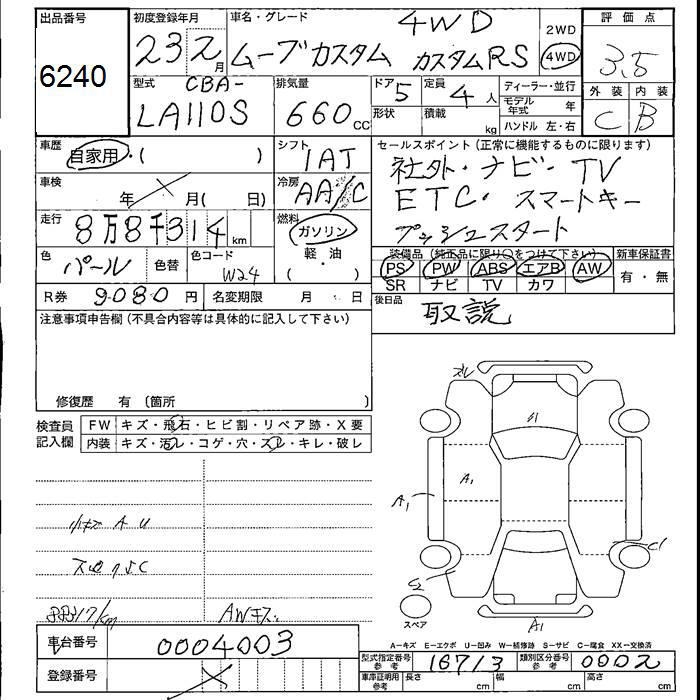 出品番号 初度登録年月 車名・グレード 4WD 2WD 評価点
6240 23 2月 ムーブカスタム カスタムRS 4WD 3.5
型式 CBA- 排気量 ドア 5 定員 4人 ディーラー・並行 外装 内装
LA110S 660cc 形状 積載 kg モデル年式 年 C B
ハンドル 左・右
車歴 自家用・( ) シフト IAT セールスポイント(正常に機能するものに限ります)
社外・ナビ・TV
車検 年 月( 日) 冷房 AA/C ETC・スマートキー
走行 8万8千314km 燃料 ガソリン プッシュスタート
軽・油
色 パール 色替 色コード W24 ( ・ )
装備品(純正品に限り○をつけて下さい) 新車保証書
PS PW ABS エアB AW 有・無
SR ナビ TV カワ
R券 9080円 名変期限 月 日 後日品 取説
注意事項申告欄(不具合内容等は具体的に記入して下さい)
修復歴 有 〔箇所 〕
検査員記入欄 FW キズ・飛石・ヒビ割・リペア跡・X要
内装 キズ・汚レ・コゲ・穴・スレ・キレ・破レ
ズレ
A1
A1 C1
小キズ A U
C2
88317/km AWキズ
スペア A1
A-キズ E-エクボ U-凹み W-補修跡 S-サビ C-腐食 XX-交換済
車台番号 0004003 型式指定番号 参考 16713 類別区分番号 参考 0002
登録番号 車庫証明用 参考 長さ cm 幅 cm 高さ cm